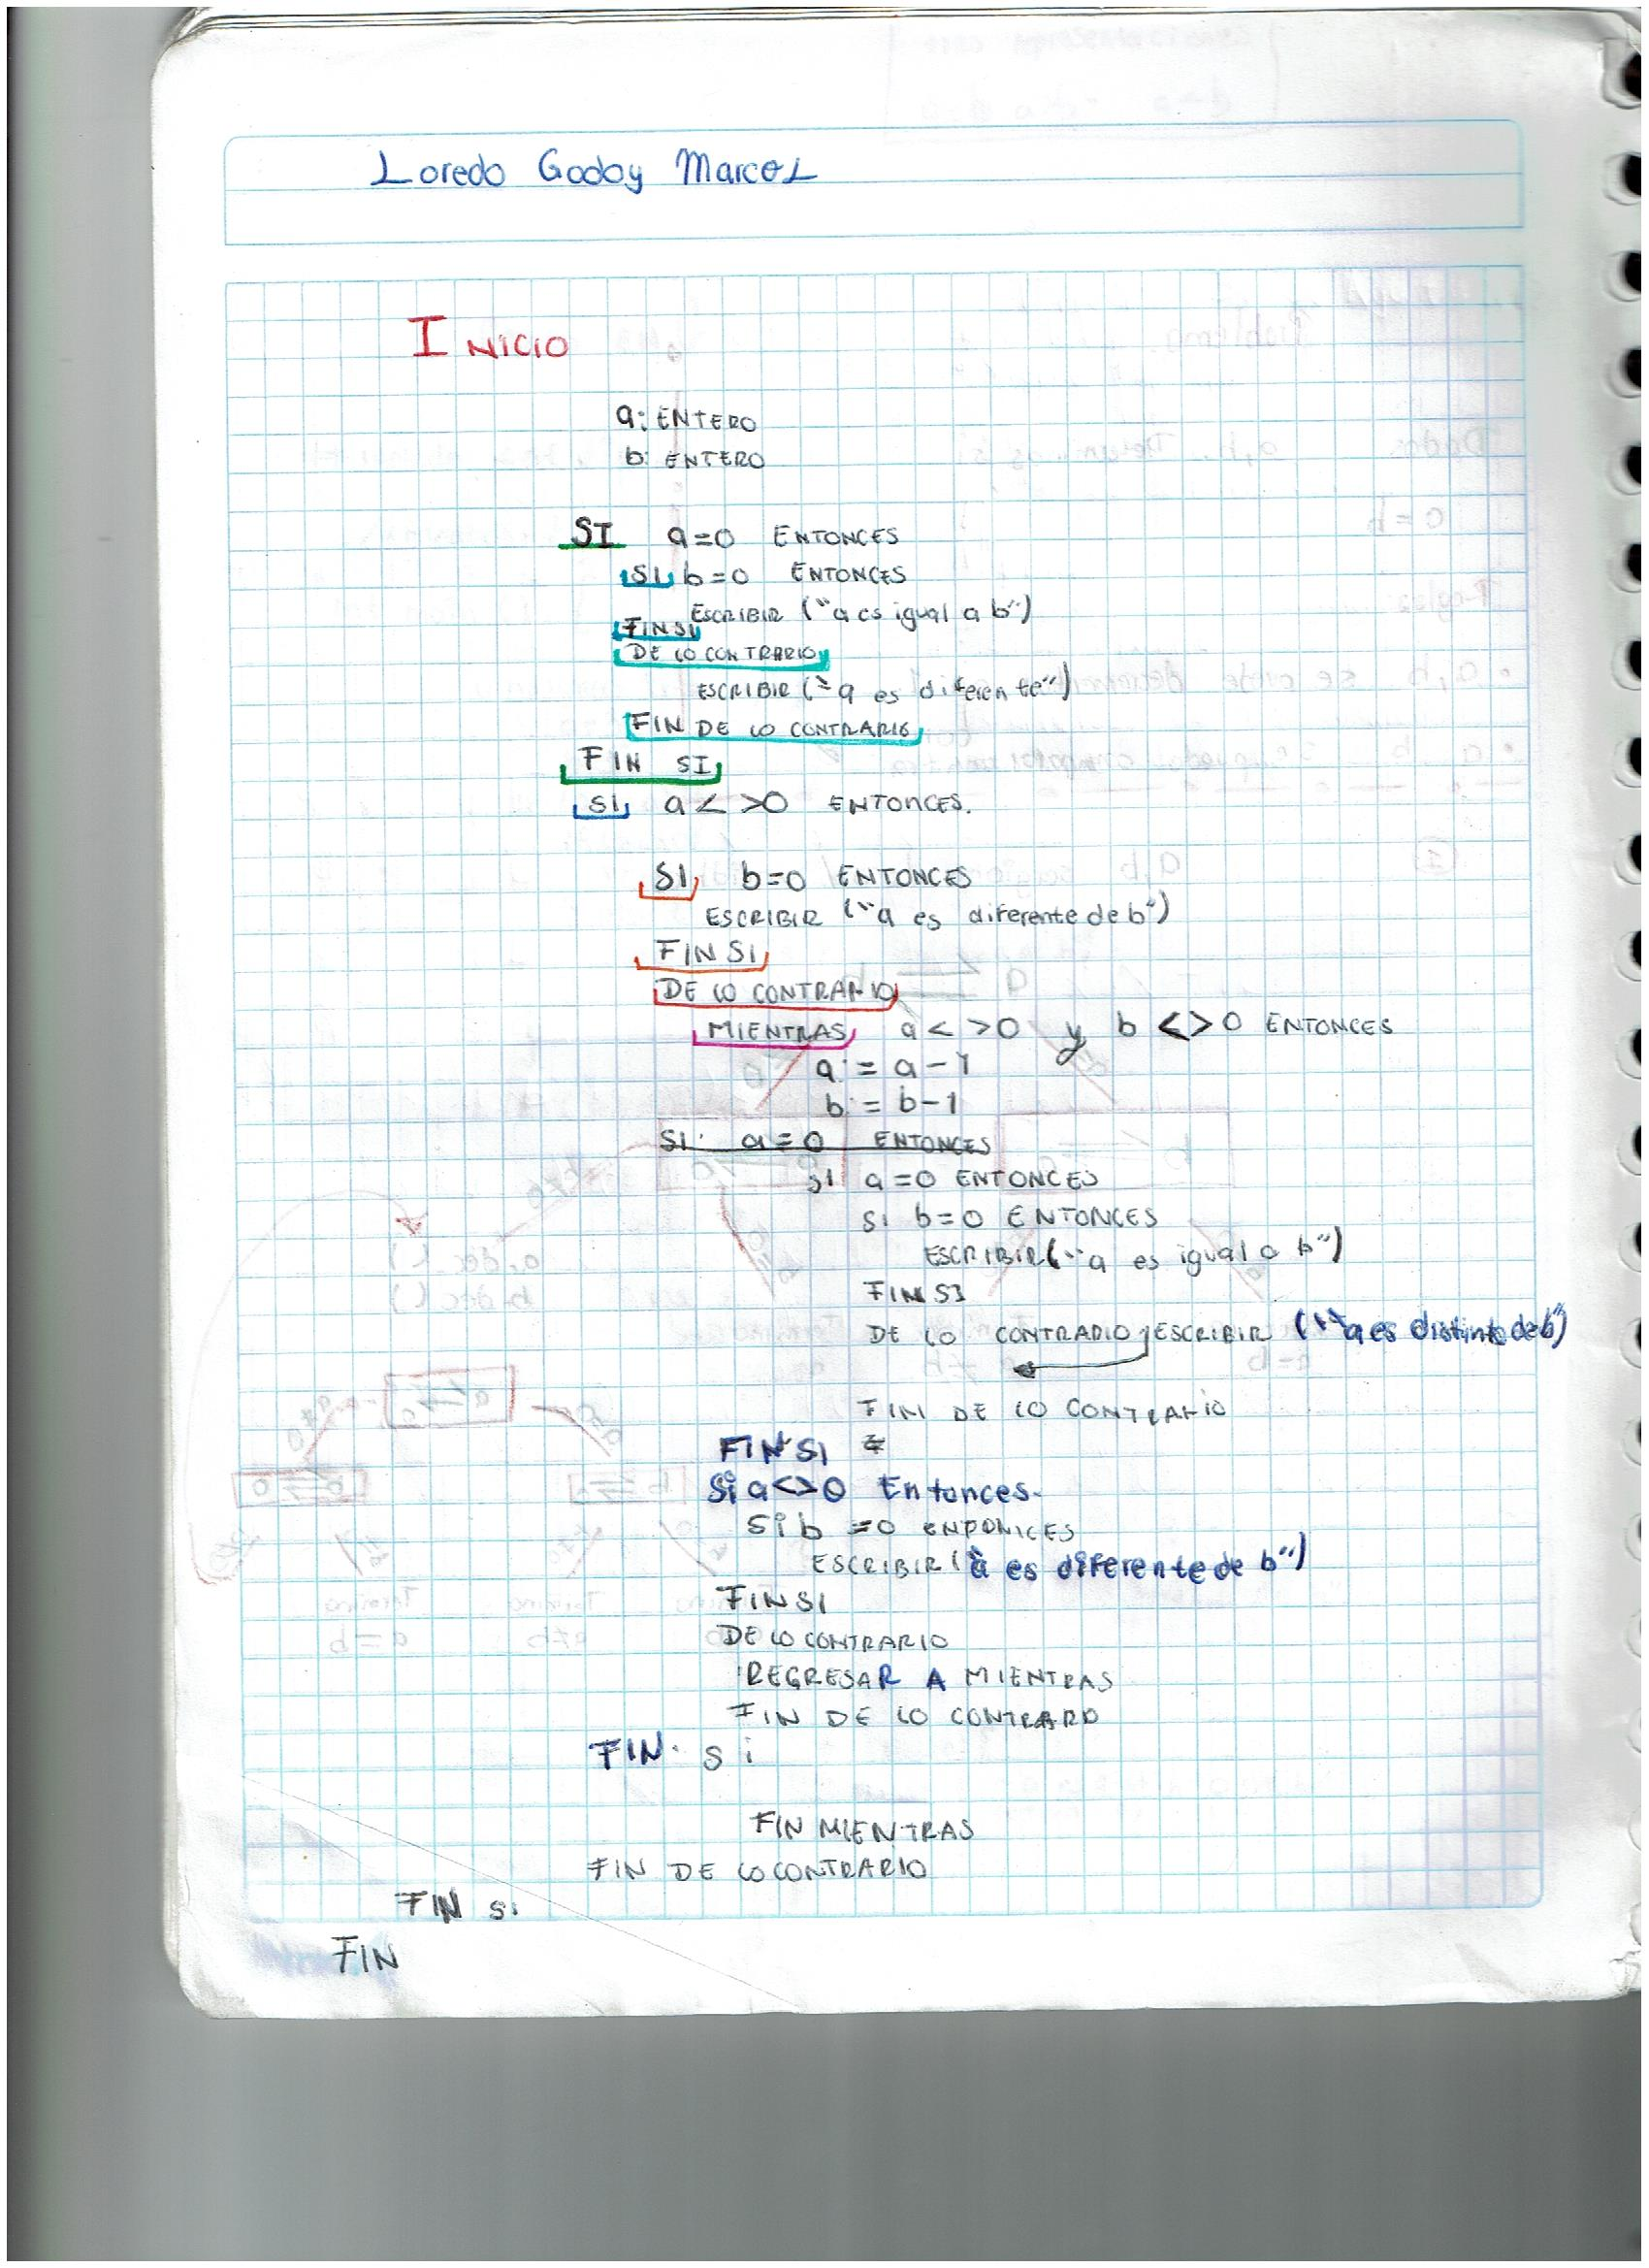 Loredo Godoy Marcos
INICIO
a: ENTERO
b: ENTERO
SI a=0 ENTONCES
SI b=0 ENTONCES
ESCRIBIR ("a es igual a b")
FIN SI
DE LO CONTRARIO
ESCRIBIR ("a es diferente")
FIN DE LO CONTRARIO
FIN SI
SI a<>0 ENTONCES.
SI b=0 ENTONCES
ESCRIBIR ("a es diferente de b")
FIN SI
DE LO CONTRARIO
MIENTRAS a<>0 y b<>0 ENTONCES
a:= a-1
b:= b-1
SI a=0 ENTONCES
SI a=0 ENTONCES
SI b=0 ENTONCES
ESCRIBIR("a es igual a b")
FIN SI
DE LO CONTRARIO ESCRIBIR ("a es distinto de b")
FIN DE LO CONTRARIO
FIN SI
Si a<>0 Entonces.
Si b =0 ENTONCES
ESCRIBIR ("a es diferente de b")
FIN SI
DE LO CONTRARIO
REGRESAR A MIENTRAS
FIN DE LO CONTRARO
FIN. Si
FIN MIENTRAS
FIN DE LO CONTRARIO
FIN Si
FIN